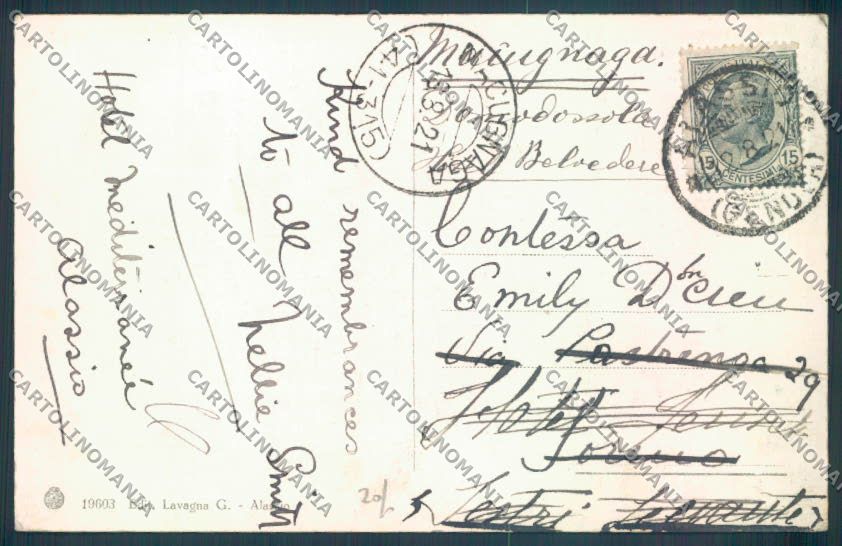 Hotel Mediterraneé
Alassio
Kind remembrances
to all
Nellie Smith
Macugnaga.
Domodossola
Hotel Belvedere
Contessa
Emily
Via Pastrengo 29
Hotel
Torino
Sestri Levante
MACUGNAGA
18.8.21
(41-315)
ALASSIO
8.21
(GENOVA)
15 15
CENTESIMI
19603 Edit. Lavagna G. - Alassio
20/
CARTOLINOMANIA